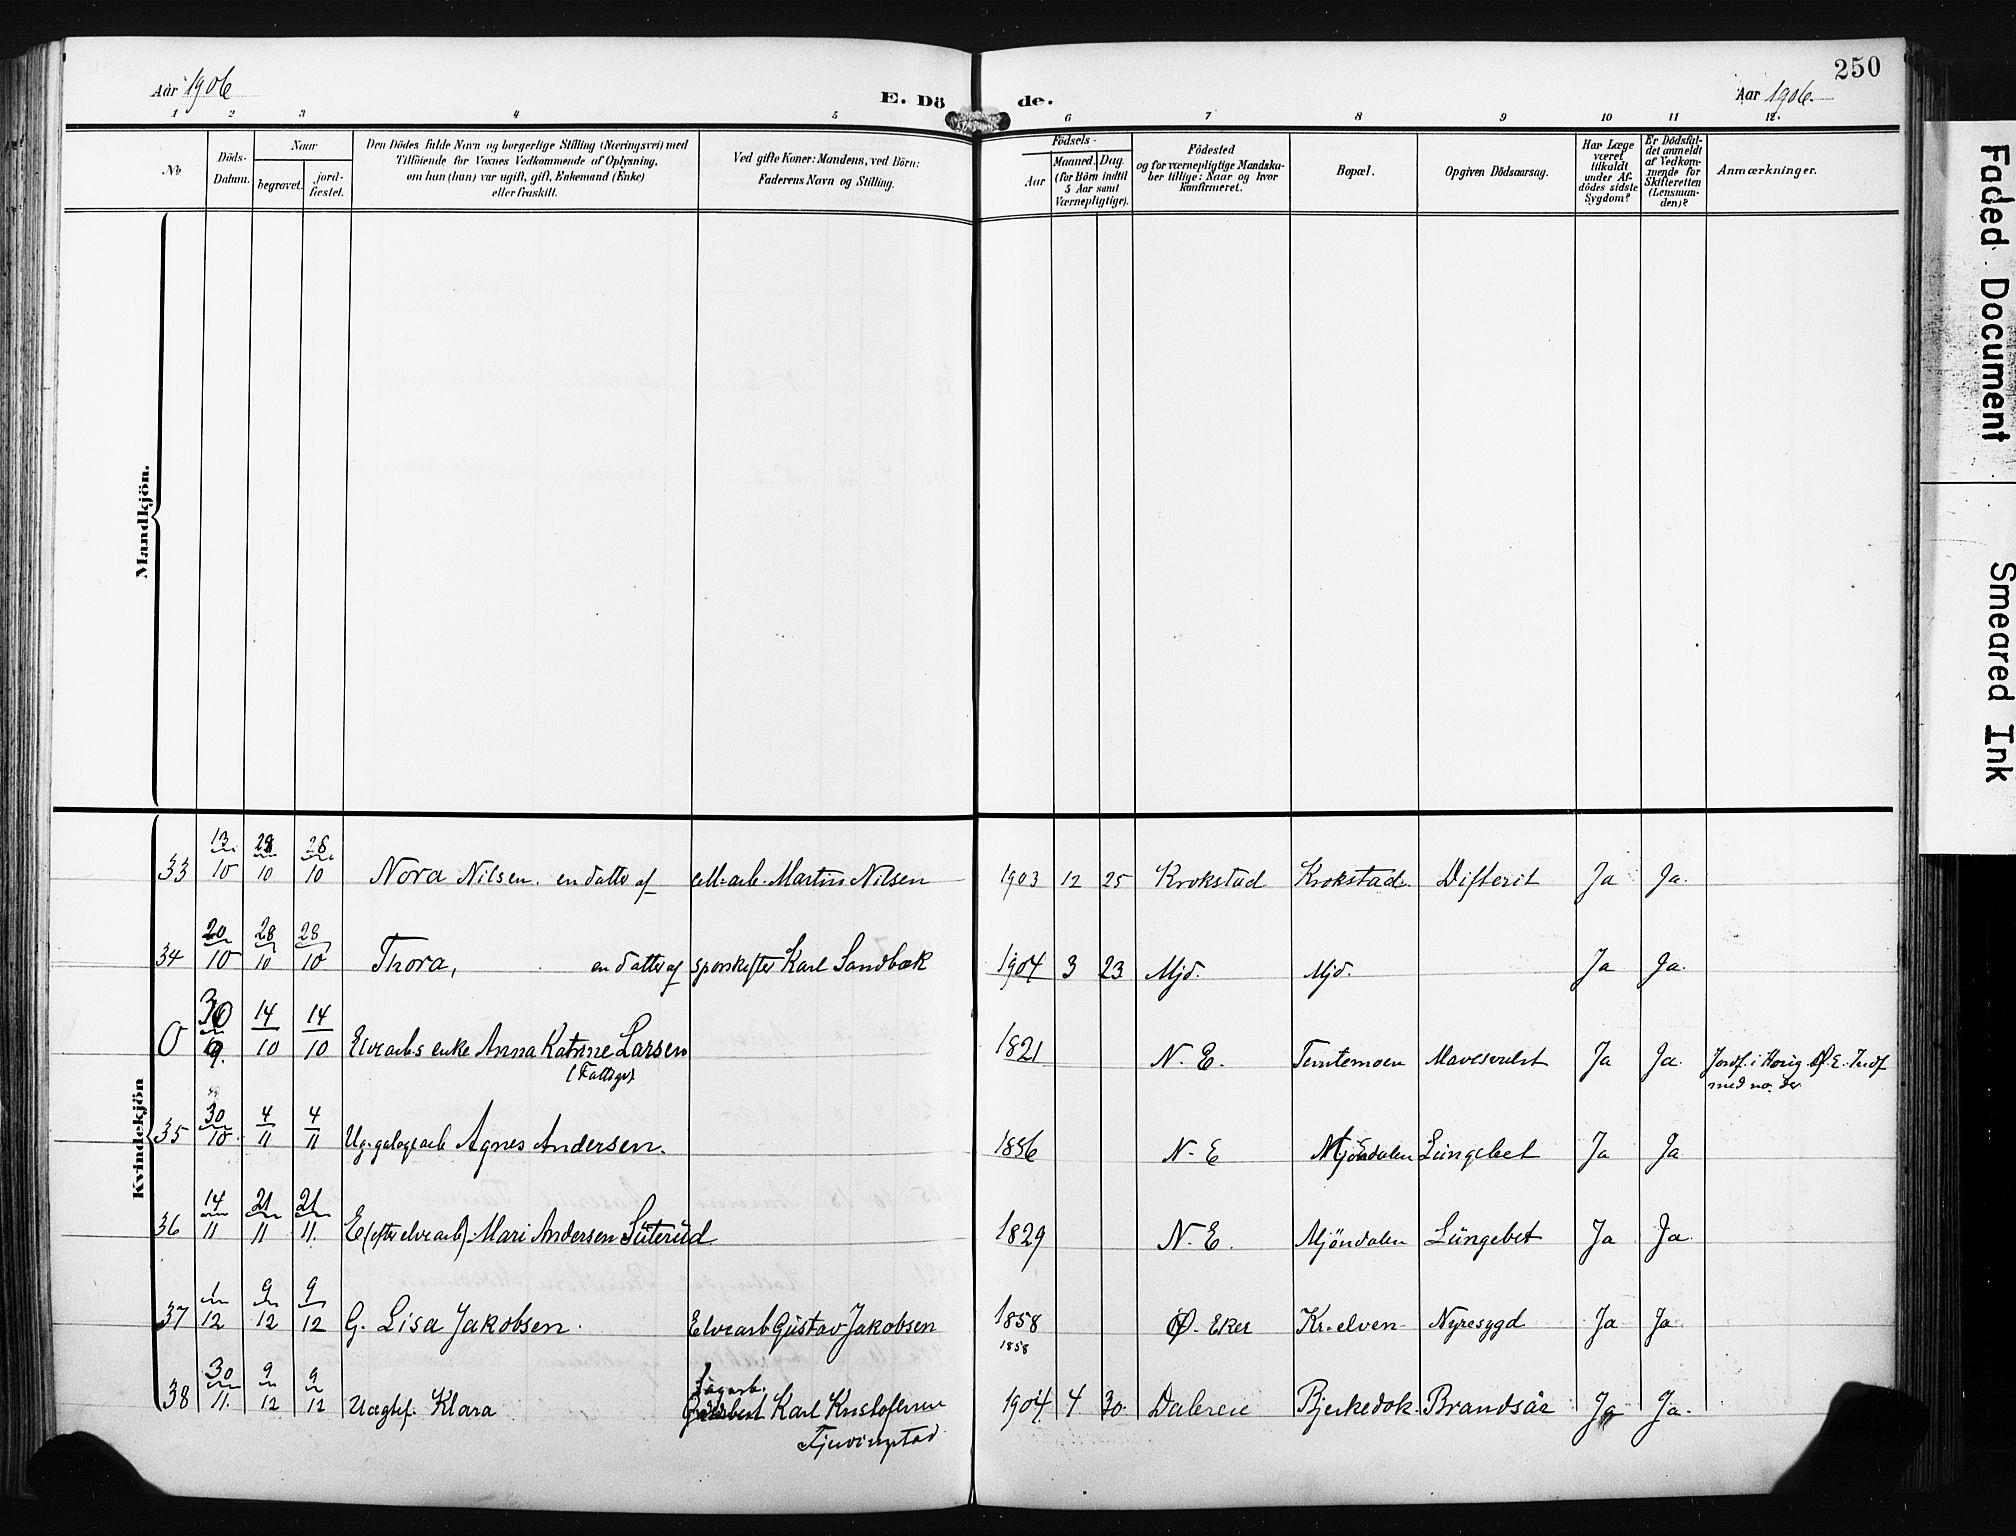 250
Aar 1906
E. Dö de.
Aar 1906.
1 2 3 4 5 6 7 8 9 10 11 12.
No
Döds-Datum.
Naar
begravet. jordfæstet.
Den Dödes fulde Navn og borgerlige Stilling (Næringsvei) med
Tilföiende for Voxnes Vedkommende af Oplysning,
om han (hun) var ugift, gift, Enkemand (Enke)
eller fraskilt.
Ved gifte Koner: Mandens, ved Börn:
Faderens Navn og Stilling.
Födsels-
Aar
Maaned. Dag.
(for Börn indtil
5 Aar samt
Værnepligtige).
Födested
og for værnepligtige Mandska-
ber tillige: Naar og hvor
konfirmeret.
Bopæl.
Opgiven Dödsaarsag.
Har Læge
været
tilkaldt
under Af-
dödes sidste
Sygdom?
Er Dödsfal-
det anmeldt
af Vedkom-
mende for
Skifteretten
(Lensman-
den)?
Anmærkninger.
Mandkjön.
Kvindekjön
33 13/10 28/10 28/10 Nora Nilsen. en datter af cell-arb. Martin Nilsen 1903 12 25 Krokstad Krokstad. Difterit Ja Ja.
34 20/10 28/10 28/10 Thora, en datter af sporskifter Karl Sandbæk 1904 3 23 Mjd. Mjd. Ja Ja.
0 30/9. 14/10 14/10 Elvearbs enke Anna Katrine Larsen 1821 N. E. Temtemoen Mavesvulst Ja Ja. Jordf. i Haug Ø. E. Indf
(Fattige)
med no. der.
35 30/10 4/11 4/11 Ug. Agnes Andersen. 1856 N. E Mjöndalen Lungebet Ja Ja
36 14/11 21/11 21/11. E (efter elvearb) Mari Andersen Süterud 1829 N. E. Mjöndalen Lüngebet Ja Ja.
37 1/12 9/12 9/12 G. Lisa Jakobsen. Elvearb Gustav Jakobsen 1858 Ø. Eker Kr-elven Nyresygd Ja Ja.
1858
38 30/11. 9/12 9/12 Uægtef. Klara Karl Kristofersen 1904 4 30. Bjerkedok. Brandsår Ja Ja.
Faded Document
Smeared Ink